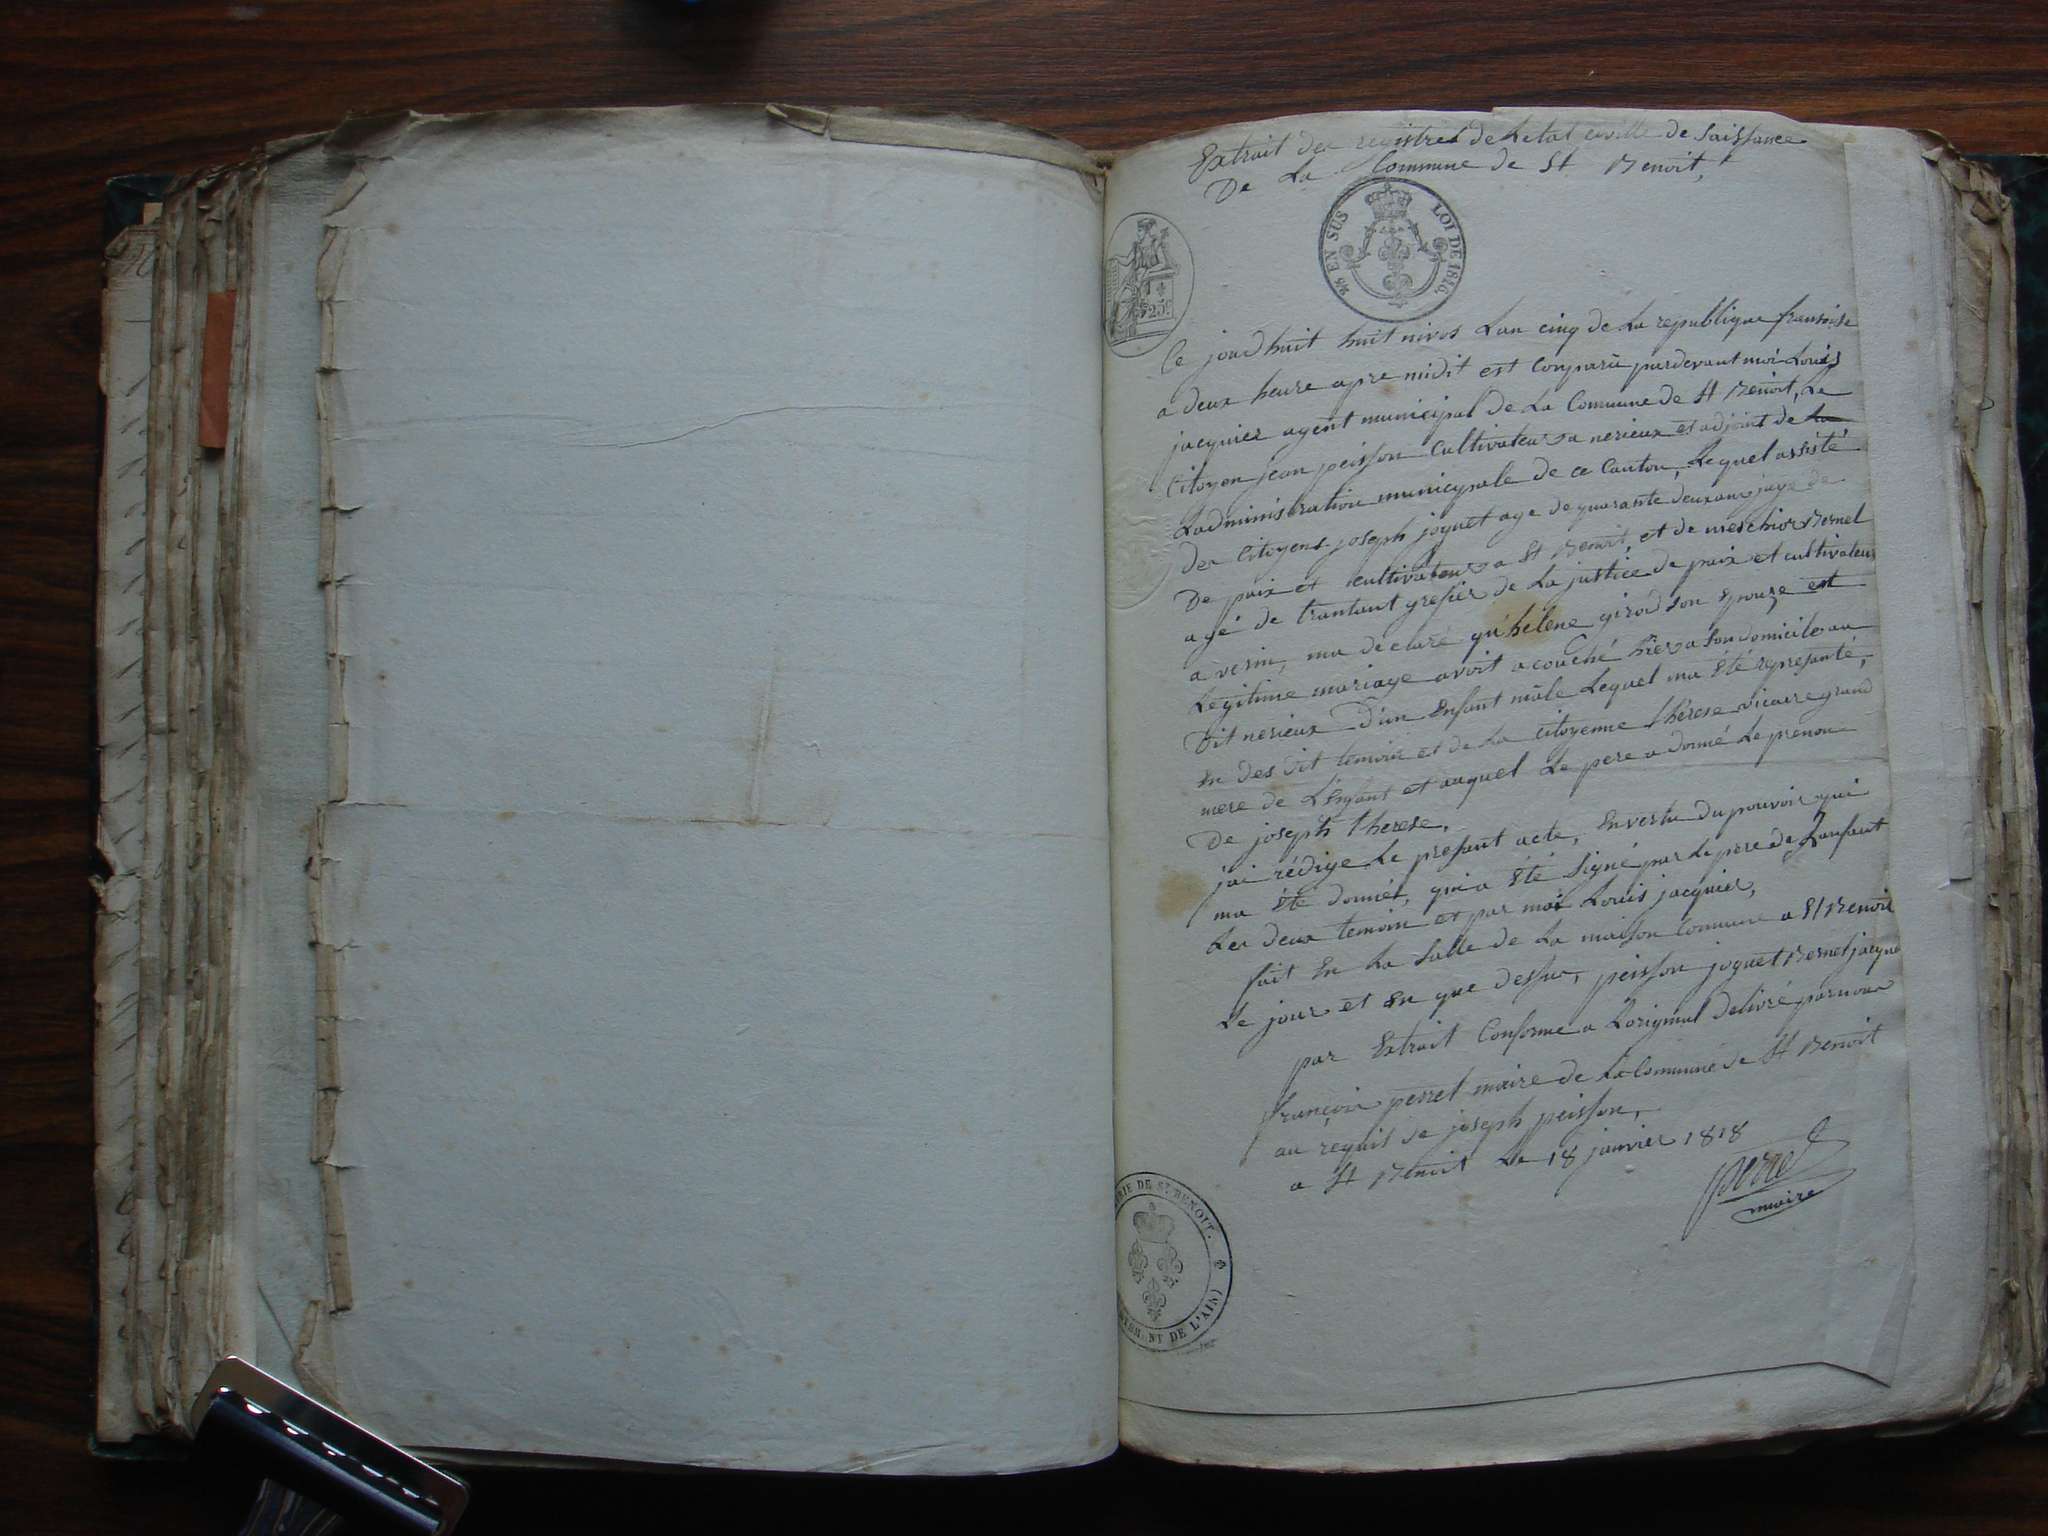 Extrait des registres de Letat civille de Naissance
De La Commune de St Benoit,
25 EN SUS LOI DE 1816.
1 25c
Ce jourdhuit huit nivos Lan cinq de La republique fransaise
a deux heure apre midit est Comparu pardevant moi Louis
jacquier agent municipal de La Commune de St Benoit, Le
Citoyen jean peisson Cultivateur a nerieux et adjoint de La
Ladministration municipale de ce Canton, Lequel assisté
Des Citoyens joseph joguet age de quarante deux ans juge de
De paix et cultivateur a St Benoit, et de melchior Bernel
agé de trantaut grefier de La justice de paix et cultivateur
a verin, ma declaré qu'hélene girod son Epouze est
Legitime mariage avoit acouché hier a son domicile au
Dit nerieux D'un Enfant mâle Lequel ma Eté represanté,
En des dit temoin et de La citoyenne thérese vicaire grand
mere de L'Enfant et auquel Le pere a donné Le prenon
De joseph therese,
jai rédige Le presant acte, En vertu du pouvoir qui
ma Eté donnét, qui a Eté Signé par Le pere de Lanfant
Les deux temoin et par moi Louis jacquier,
fait En La Salle de La maison Commune a St Benoit
Le jour et an que dessus, peisson joguet Bernel jacquier
par Extrait Conforme a Loriginal Delivré par nous
françois perret maire de La Commune de St Benoit
au requis de joseph peisson,
a St Benoit Le 18 janvier 1818
perret
maire
RIE DE ST BENOIT.
NT DE L'AIN)